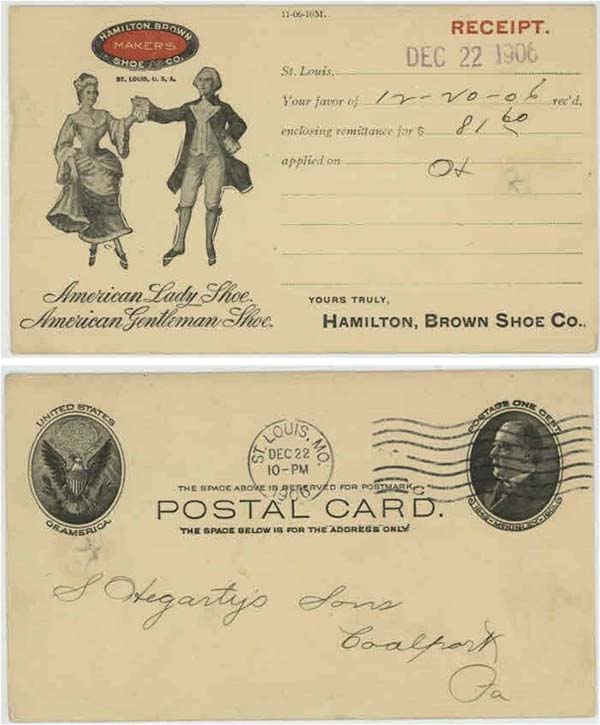 HAMILTON.BROWN
MAKERS
SHOE CO.
ST. LOUIS, U. S. A.
American Lady Shoe.
American Gentleman Shoe.
11-06-10M.
RECEIPT.
DEC 22 1906
St. Louis,
Your favor of 12-20-06 rec'd,
enclosing remittance for $ 81 60
applied on
YOURS TRULY,
HAMILTON, BROWN SHOE CO.,
UNITED STATES
OF AMERICA
ST. LOUIS, MO.
DEC 22
10-PM
1906
POSTAGE ONE CENT
McKINLEY
THE SPACE ABOVE IS RESERVED FOR POSTMARK.
POSTAL CARD.
THE SPACE BELOW IS FOR THE ADDRESS ONLY.
S Hegarty's Sons
Coalport
Pa